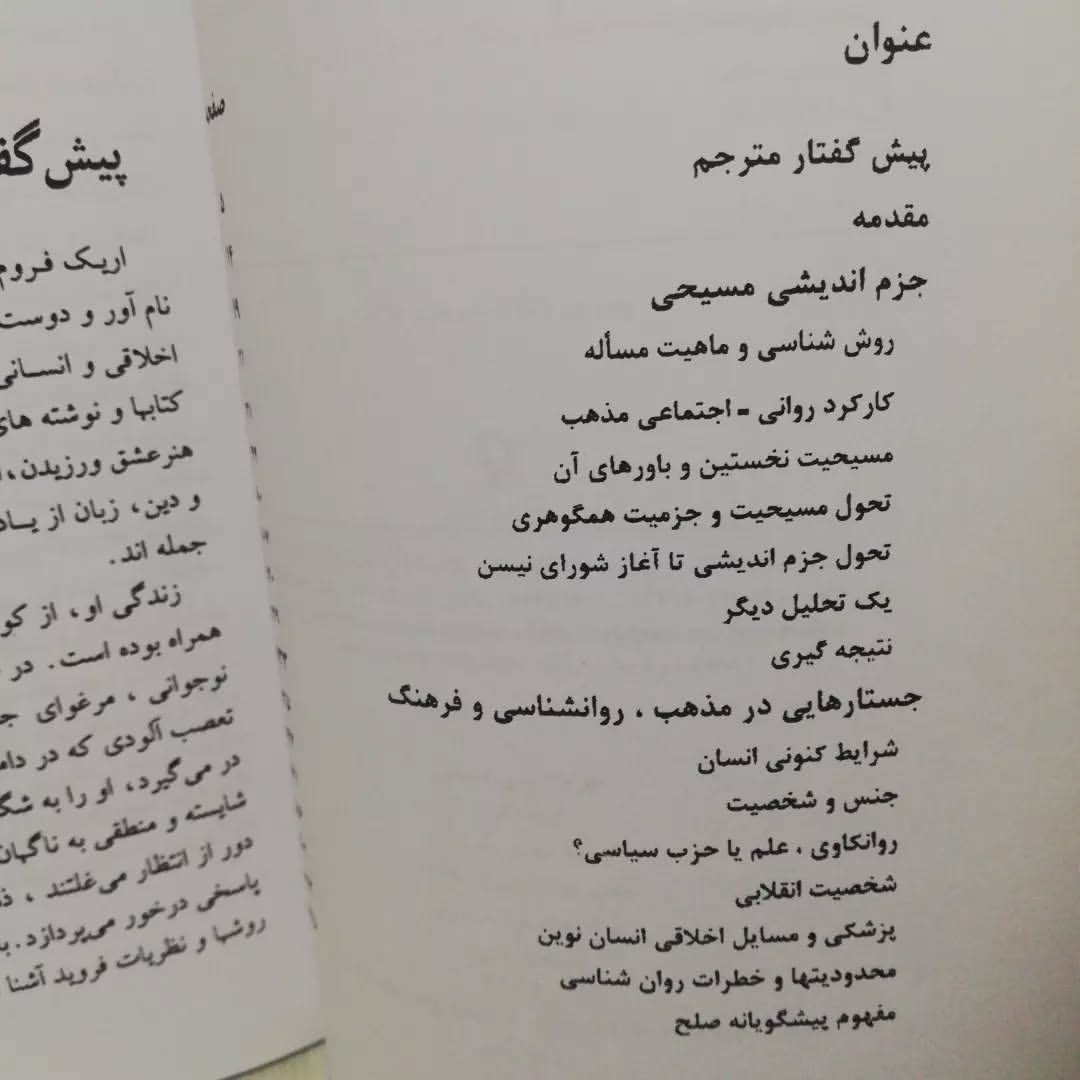 عنوان
پیش گفتار مترجم
مقدمه
جزم اندیشی مسیحی
روش شناسی و ماهیت مسأله
کارکرد روانی - اجتماعی مذهب
مسیحیت نخستین و باورهای آن
تحول مسیحیت و جزمیت همگوهری
تحول جزم اندیشی تا آغاز شورای نیسن
یک تحلیل دیگر
نتیجه گیری
جستارهایی در مذهب ، روانشناسی و فرهنگ
شرایط کنونی انسان
جنس و شخصیت
روانکاوی ، علم یا حزب سیاسی؟
شخصیت انقلابی
پزشکی و مسایل اخلاقی انسان نوین
محدودیتها و خطرات روان شناسی
مفهوم پیشگویانه صلح
پیش
اریک فروم
نام آور و دوست
اخلاقی و انسانی
کتابها و نوشته های
هنرعشق ورزیدن،
و دین، زبان از یاد
جمله اند.
زندگی او، از
همراه بوده است. در
نوجوانی ، مرغوای
تعصب آلودی که در
در می‌گیرد، او را به
شایسته و منطقی به
دور از انتظار می‌غلتند ،
پاسخی درخور می‌پردازد.
روشها و نظریات فروید آشنا